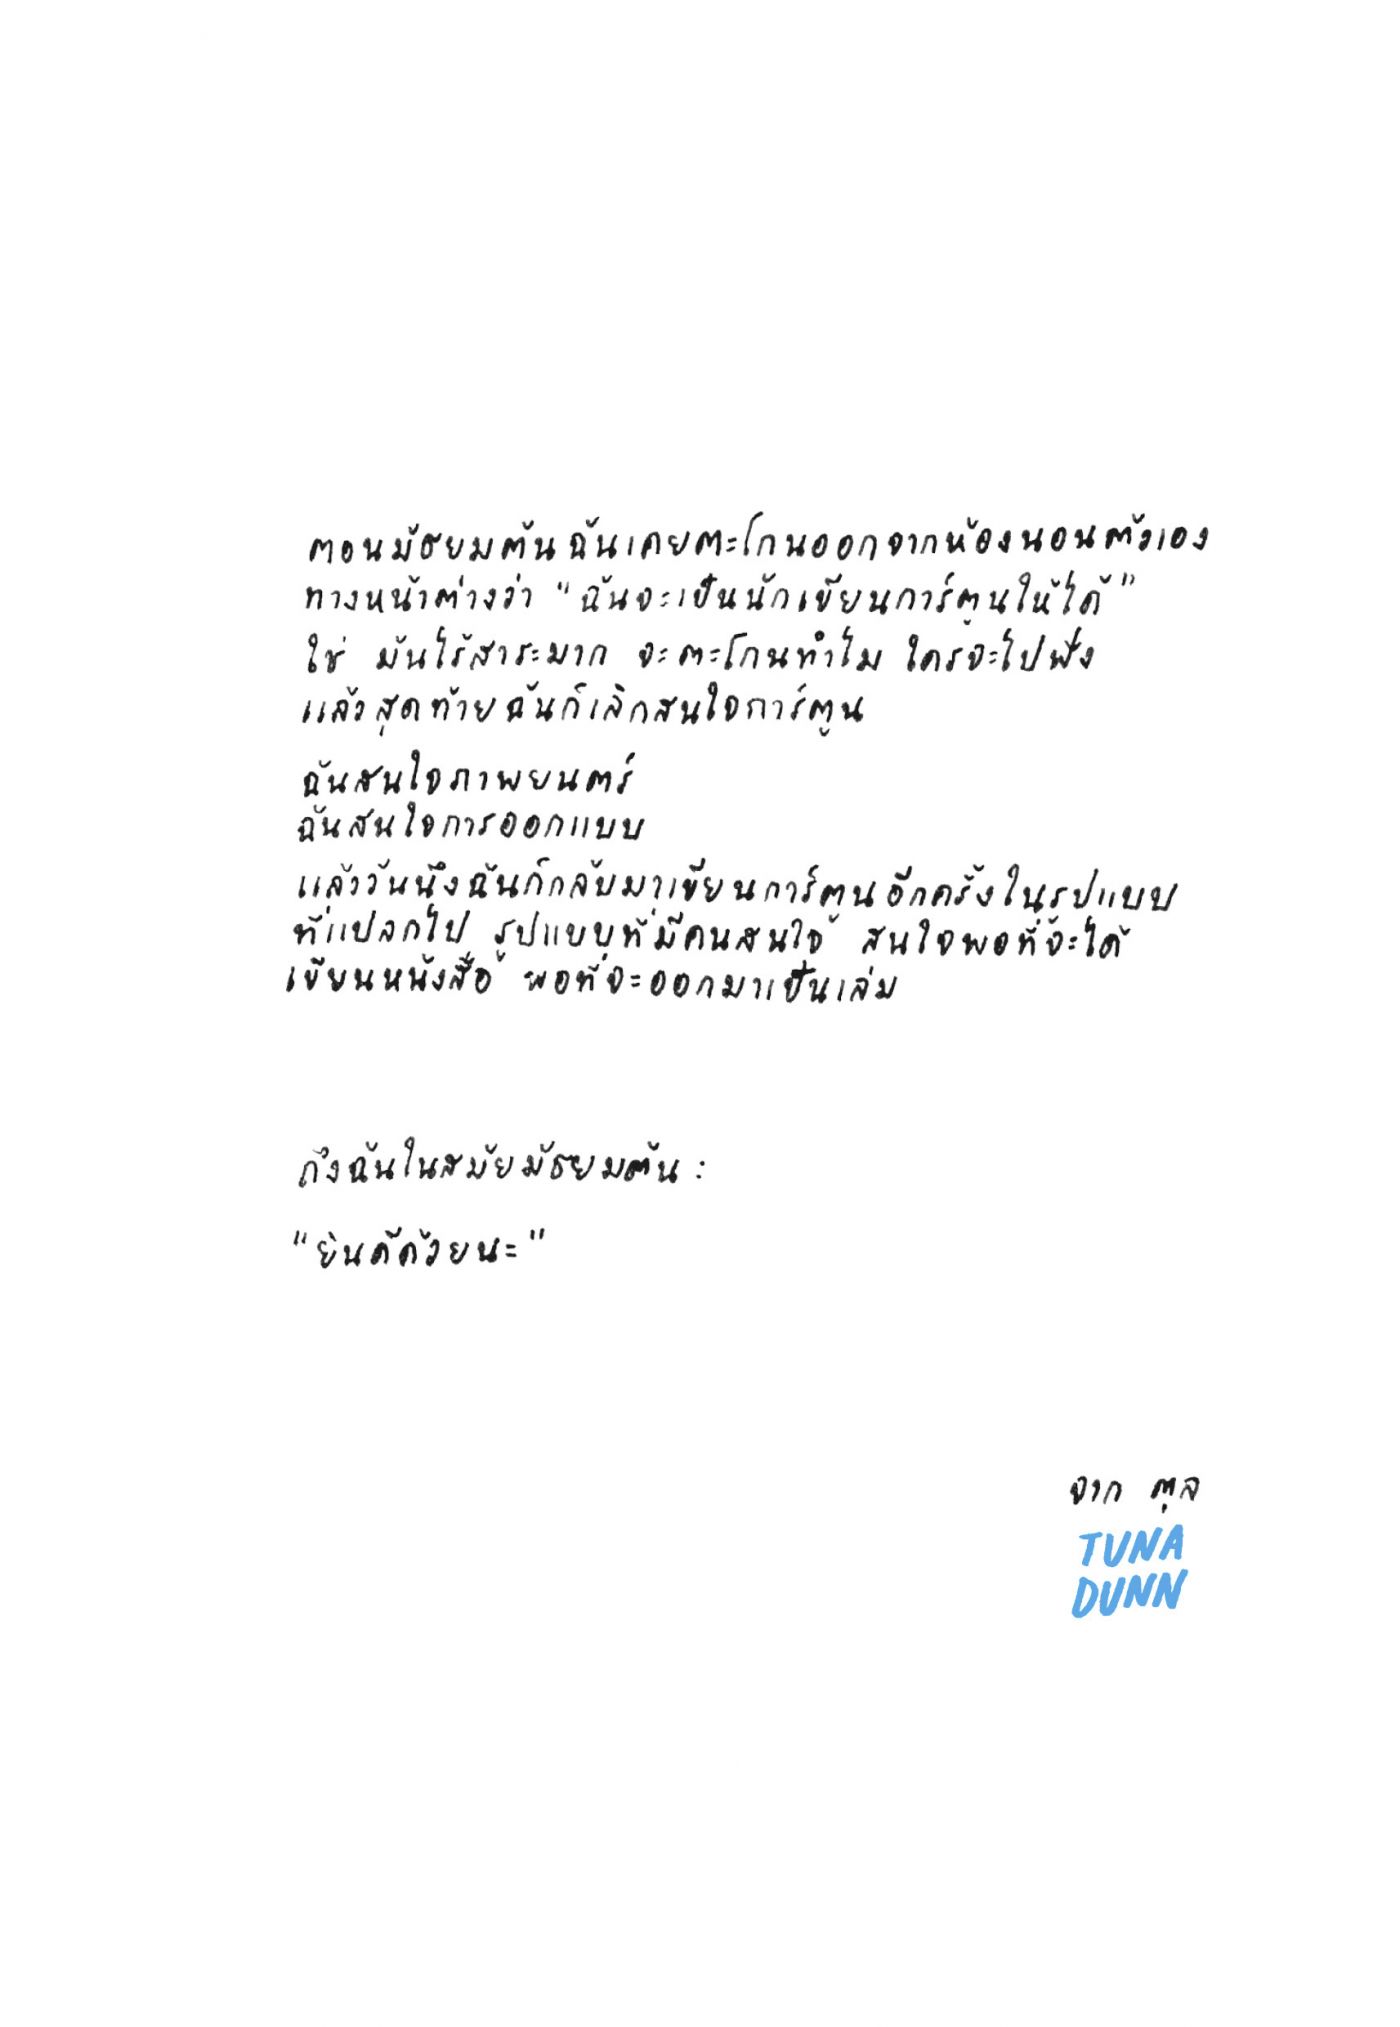 ตอนมัธยมต้นฉันเคยตะโกนออกจากห้องนอนตัวเอง
ทางหน้าต่างว่า "ฉันจะเป็นนักเขียนการ์ตูนให้ได้"
ใช่ มันไร้สาระมาก จะตะโกนทำไม ใครจะไปฟัง
แล้วสุดท้ายฉันก็เลิกสนใจการ์ตูน
ฉันสนใจภาพยนตร์
ฉันสนใจการออกแบบ
แล้ววันนึงฉันก็กลับมาเขียนการ์ตูนอีกครั้งในรูปแบบ
ที่แปลกไป รูปแบบที่มีคนสนใจ สนใจพอที่จะได้
เขียนหนังสือ พอที่จะออกมาเป็นเล่ม
ถึงฉันในสมัยมัธยมต้น :
"ยินดีด้วยนะ"
จาก ตุล
TUNA
DUNN